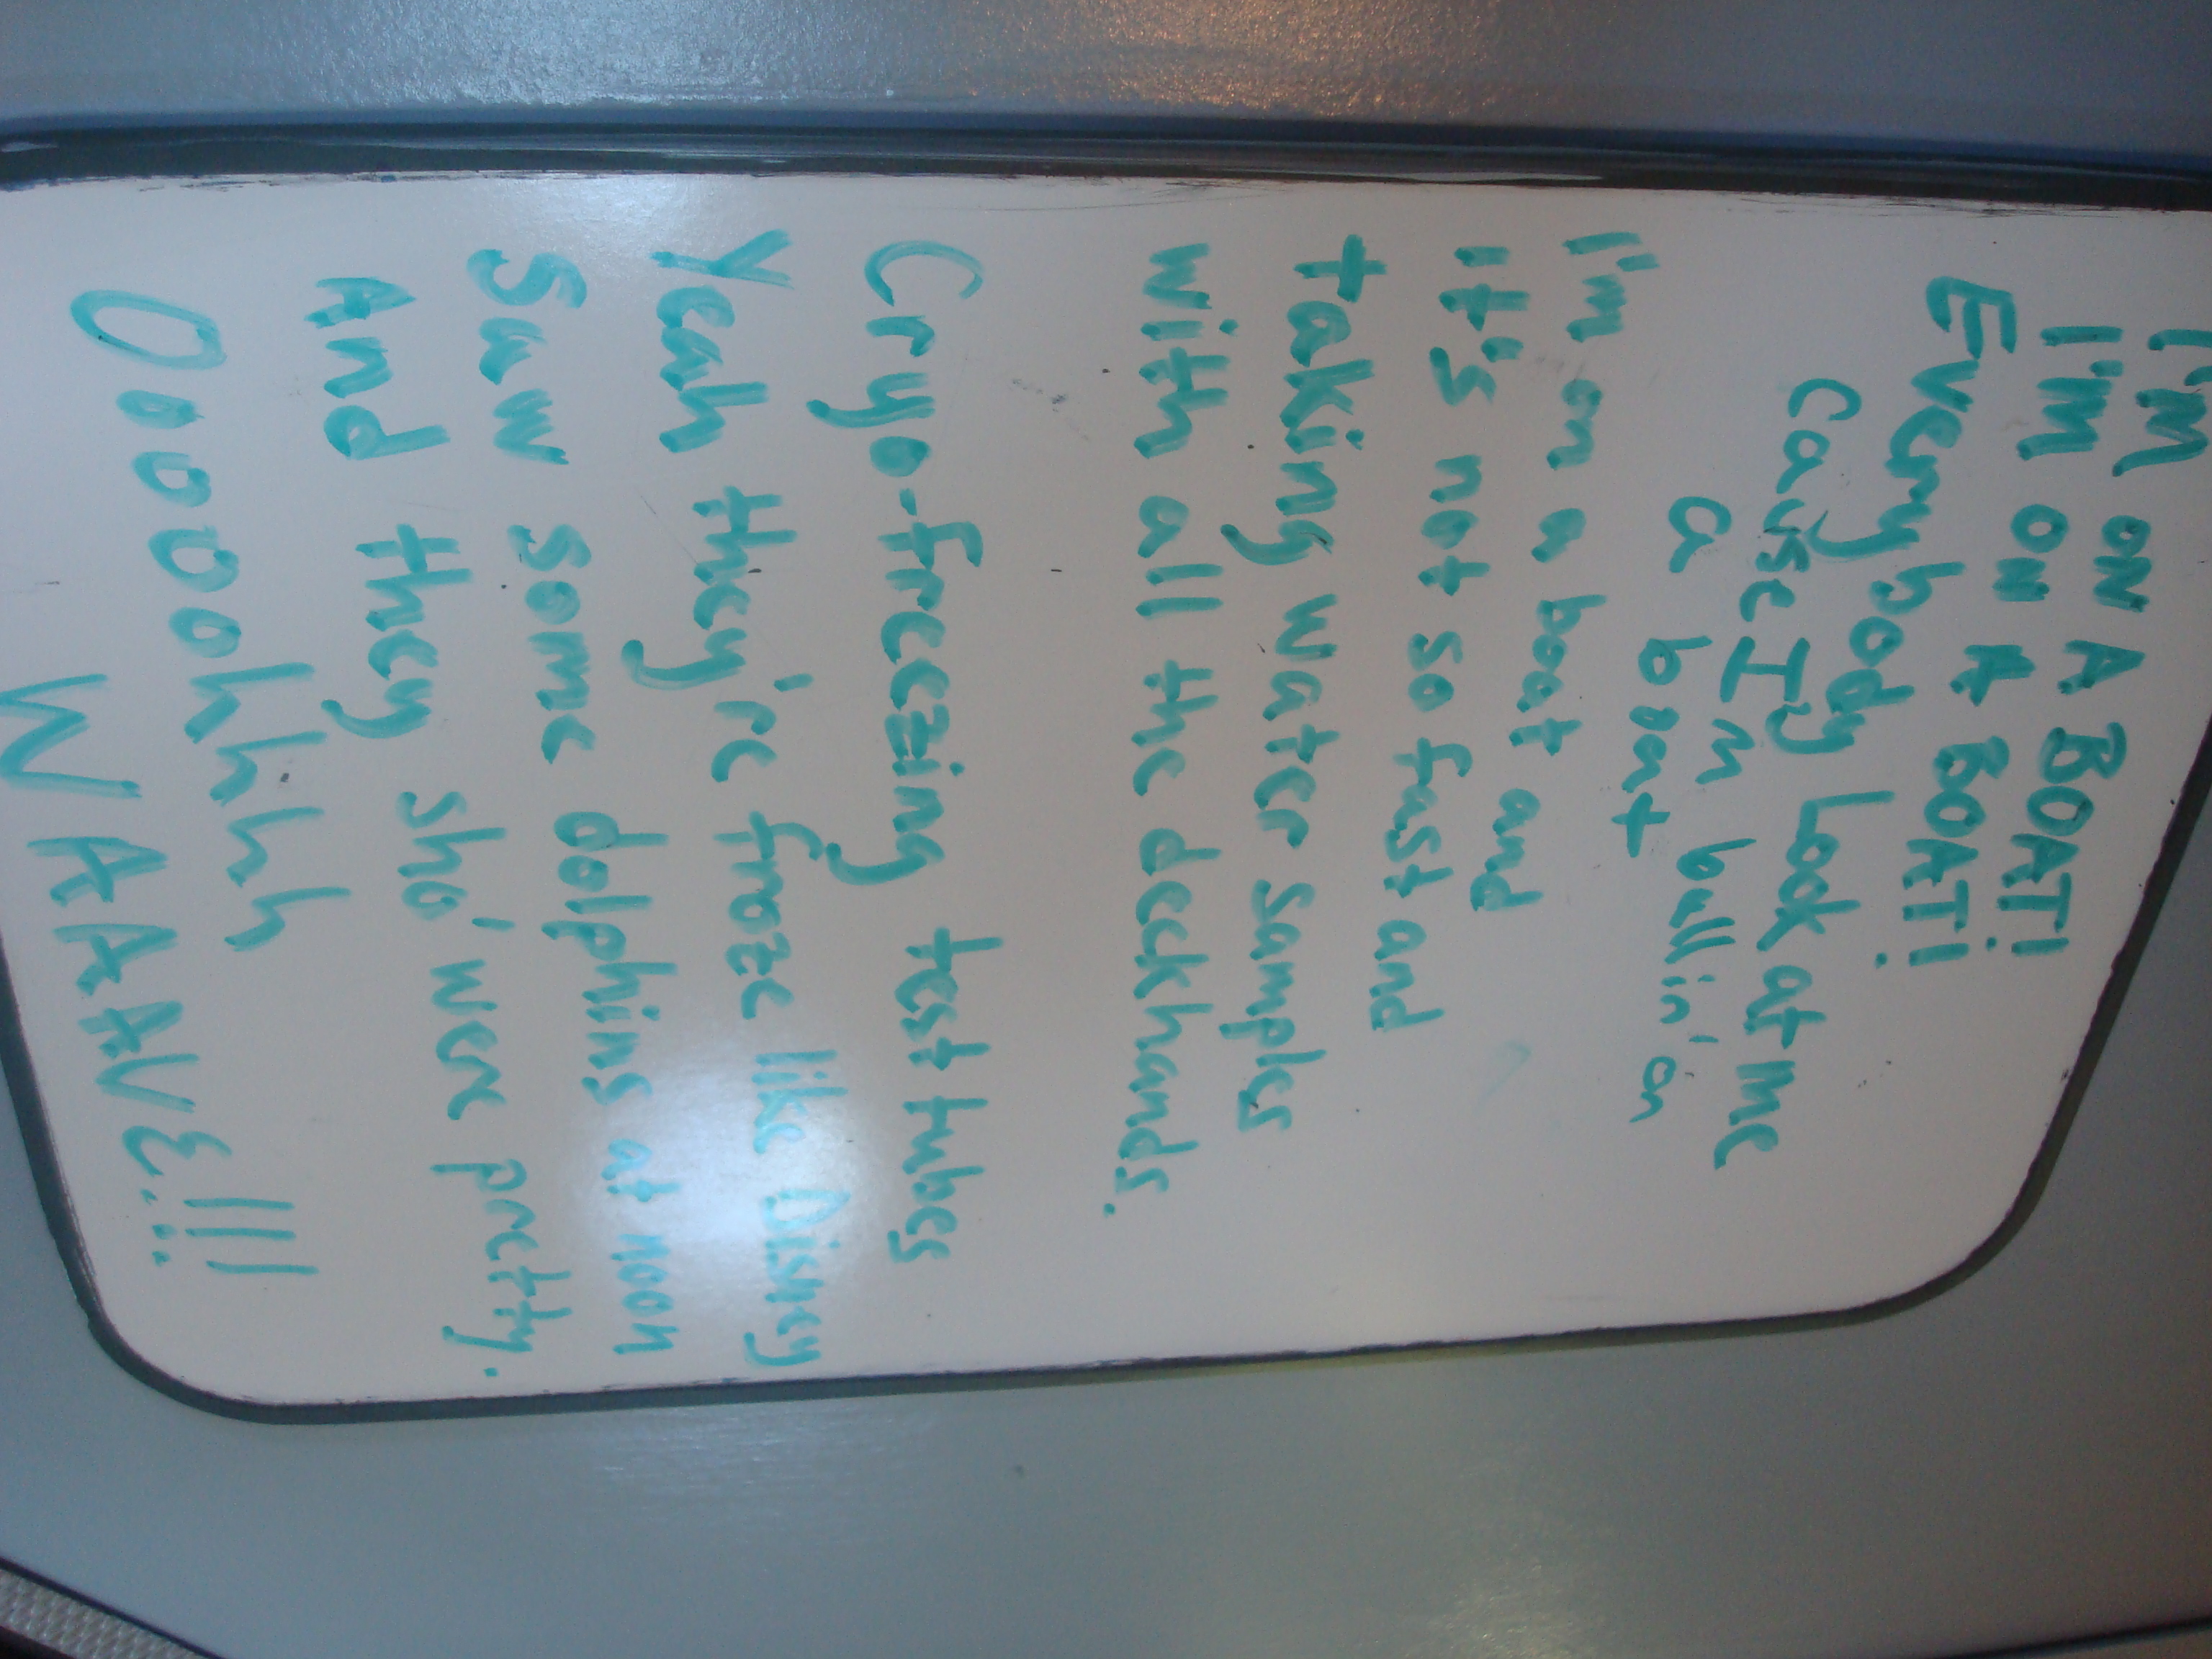 I'm ON A BOAT!
I'M ON A BOAT!
Everybody Look at me
Cause I'm ballin' on
a boat
I'm on a boat and
it's not so fast and
taking water samples
with all the deckhands.
Cryo-freezing test tubes
Yeah they're froze like Disney
Saw some dolphins at noon
And they sho' were pretty.
Ooooohhhh
WAAAVE!!!